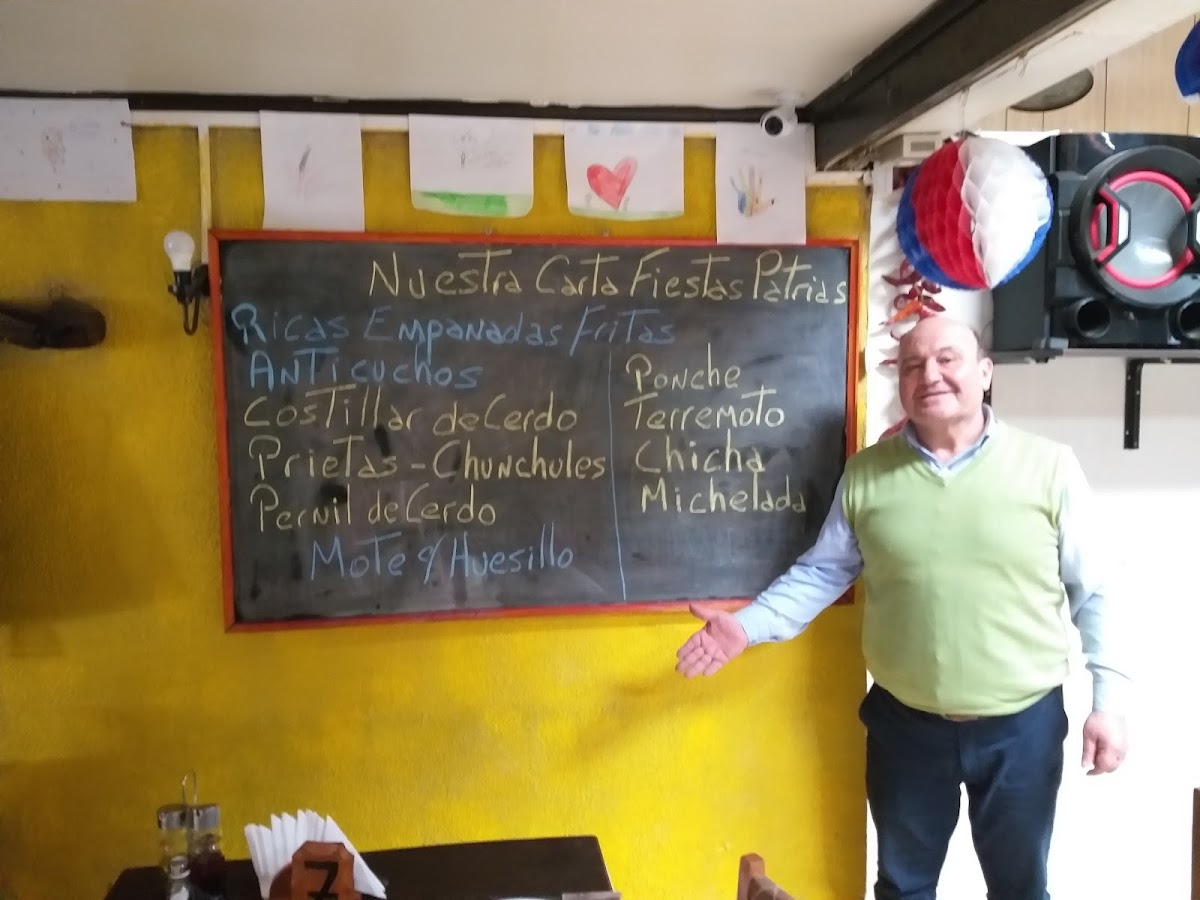 Nuestra Carta Fiestas Patrias
Ricas Empanadas Fritas
Anticuchos
Costillar de Cerdo
Prietas - Chunchules
Pernil de Cerdo
Mote c/ Huesillo
Ponche
Terremoto
Chicha
Michelada
7